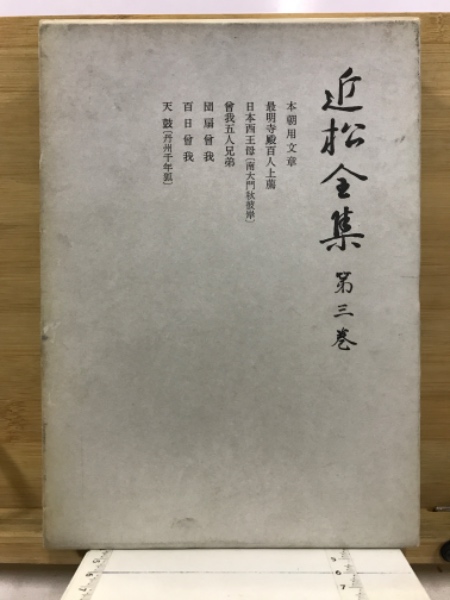 近松全集 第三巻
本朝用文章
最明寺殿百人上﨟
日本西王母〔南大門秋彼岸〕
曾我五人兄弟
団扇曾我
百日曾我
天鼓〔丹州千年狐〕